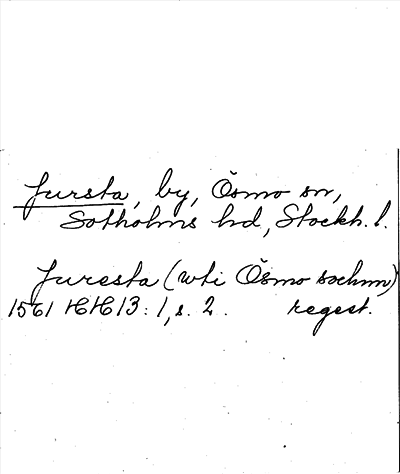 Jursta, by, Ösmo sn,
Sotholms hd, Stockh. l.
Juresta (wti Ösmo sochnn)
1561 HH 13: 1, s. 2. regest.